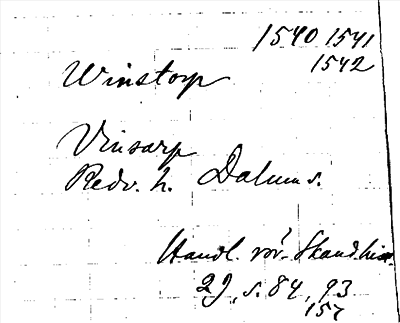 1540 1541
1542
Winstorp
Vinsarp
Redv. h. Dalums s.
Handl. rör. Skand. hist.
29, s. 84, 93
157